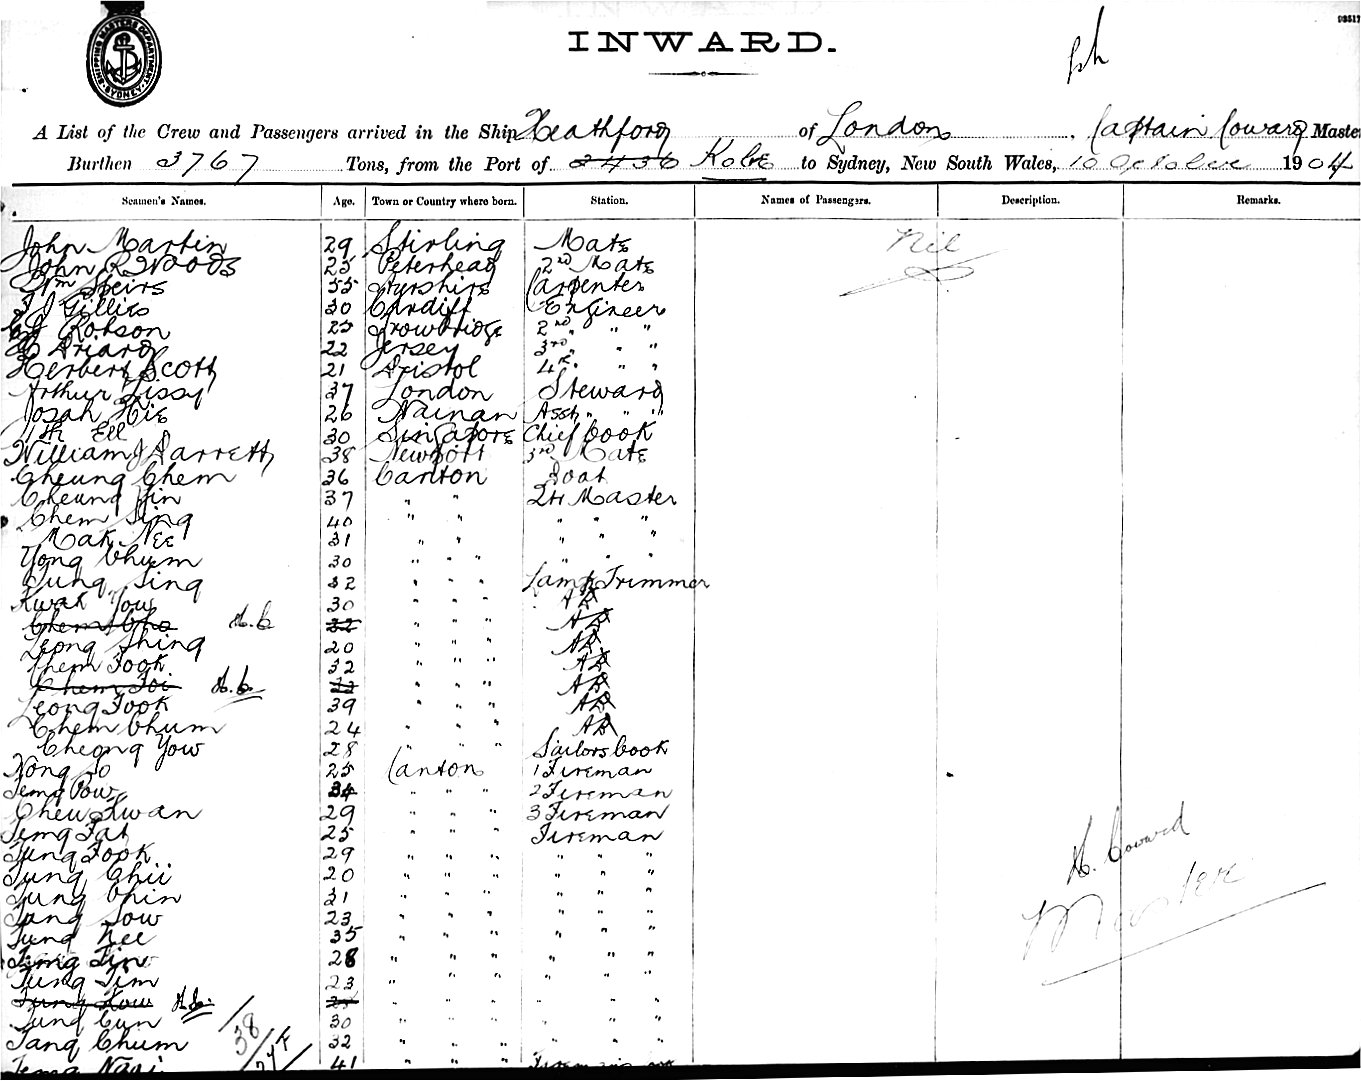 03517
SHIPPING MASTER'S DEPARTMENT
SYDNEY
INWARD.
A List of the Crew and Passengers arrived in the Ship Heathford of London, Captain Coward Master
Burthen 3767 Tons, from the Port of 2436 Kobe to Sydney, New South Wales, 10 October 1904
Seamen's Names. Age. Town or Country where born. Station. Names of Passengers. Description. Remarks.
John Martin 29 Stirling Mate Nil
John R Woods 25 Peterhead 2nd Mate
Wm Speirs 55 Ayrshire Carpenter
Gillies 30 Cardiff Engineer
Robson 25 Trowbridge 2nd " "
22 Jersey 3rd " "
Herbert Scott 21 Bristol 4th " "
Arthur 37 London Steward
Josah 26 Hainan Asst " "
30 Singapore Chief Cook
William J Barrett 38 Newport 3rd Mate
Cheung Chem 36 Canton Boat
Cheung 37 " " Qtr Master
Chem Sing 40 " " " " "
Mak Nee 31 " " " " "
Yong Chum 30 " " " " "
Tung Sing 32 " " " Lamp Trimmer
Kwak You 30 " " " AB
Chem H.C 32 " " " AB
Leong Shing 20 " " " AB
Chem Fook 32 " " " AB
Chem Foi H.C. " " " AB
Leong Fook 39 " " " AB
Chem Chum 24 " " " AB
Cheong Yow 28 " " " Sailors Cook
Kong So 25 Canton 1 Fireman
Pow 34 " " " 2 Fireman
Chew Kwan 29 " " " 3 Fireman
Fat 25 " " " Fireman
Tung Fook 29 " " " " " "
Tung Chii 20 " " " " " "
Tung Chin 31 " " " " " "
Tang Sow 23 " " " " " "
Tung Nee 35 " " " " " "
28 " " " " " "
Tung Tim 23 " " " " " "
Tung H.C. " " " " " "
Tung Cun 30 " " " " " "
Tang Chum 32 " " " " " "
41 " " "
38
H. Coward
Master